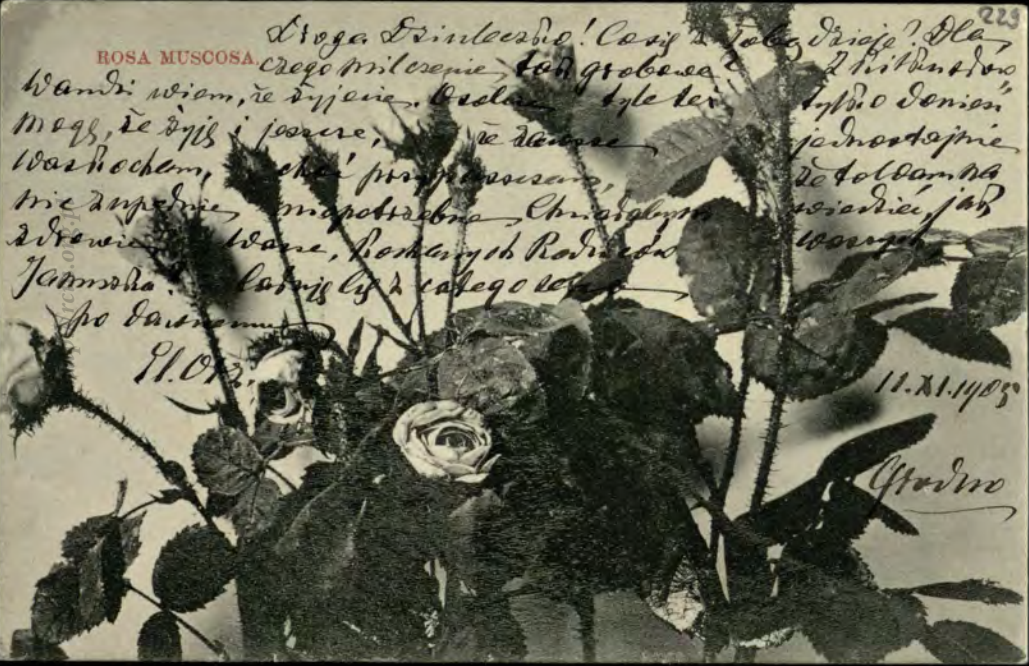 229
ROSA MUSCOSA.
Droga Dziuleczko! Co się z Tobą dzieje? Dla
czego milczenie tak grobowe? Z
Wandzi wiem, że żyjecie. O sobie tyle też tylko donieść
mogę, że żyję i jeszcze, że zawsze jednostajnie
Was kocham, choć przypuszczam, że to
nie zupełnie niepotrzebne. Chciałabym wiedzieć, jak
zdrowie Wasze, Kochanych Rodziców Waszych
Januszka. Całuję Cię z całego serca
po dawnemu
El. Orz.
11.XI.1905
Grodno